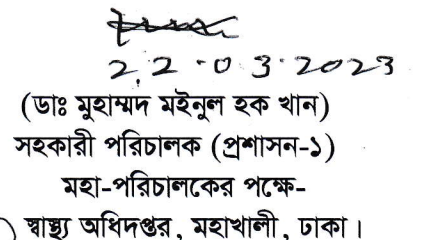 22.03.2023
(ডাঃ মুহাম্মদ মইনুল হক খান)
সহকারী পরিচালক (প্রশাসন-১)
মহা-পরিচালকের পক্ষে-
স্বাস্থ্য অধিদপ্তর, মহাখালী, ঢাকা।